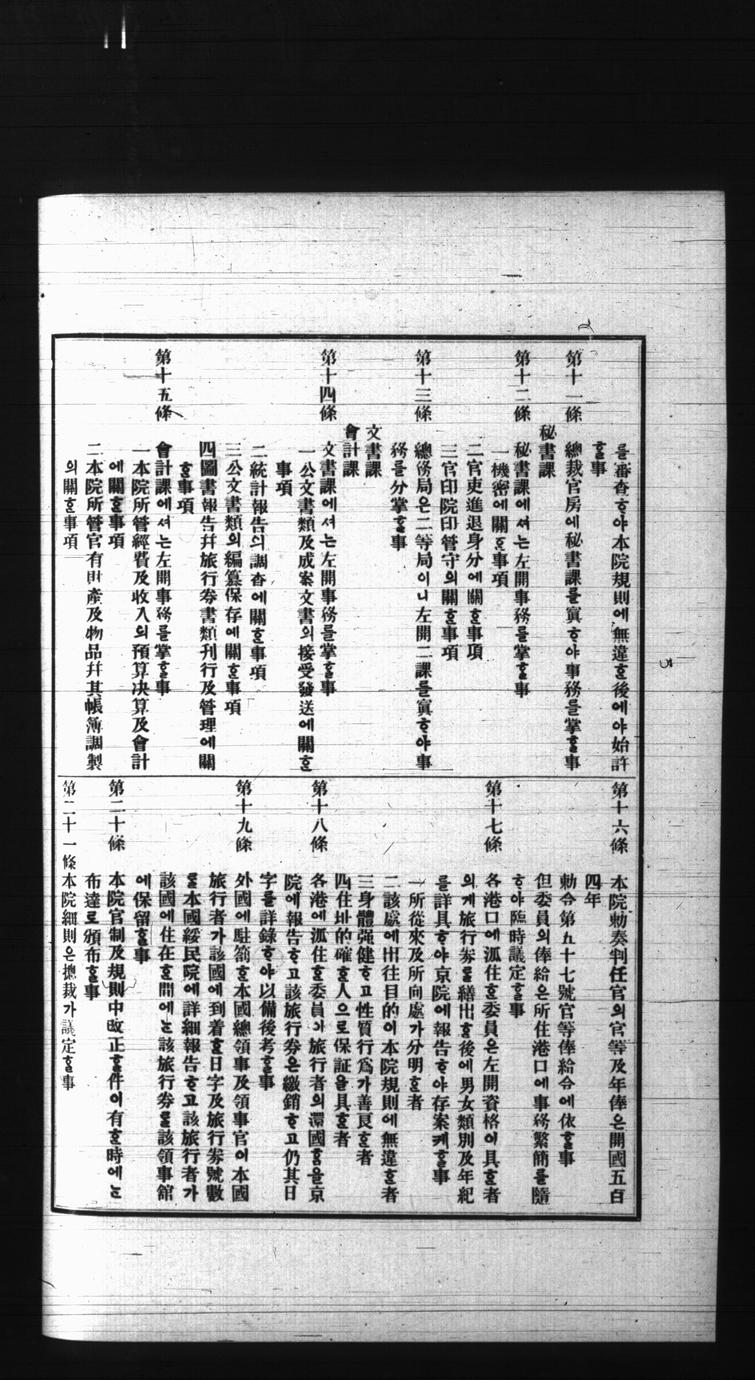 를審查ᄒᆞ야本院規則에無違ᄒᆞᆫ後에야始許
ᄒᆞᆯ事
第十一條 總裁官房에秘書課를寘ᄒᆞ야事務를掌ᄒᆞᆯ事
秘書課
第十二條 秘書課에셔ᄂᆞᆫ左開事務를掌ᄒᆞᆯ事
一機密에關ᄒᆞᆫ事項
二官吏進退身分에關ᄒᆞᆫ事項
三官印院印管守의關ᄒᆞᆫ事項
第十三條 總務局은二等局이니左開二課를寘ᄒᆞ야事
務를分掌ᄒᆞᆯ事
文書課
會計課
第十四條 文書課에셔ᄂᆞᆫ左開事務를掌ᄒᆞᆯ事
一公文書類及成案文書의接受發送에關ᄒᆞᆫ
事項
二統計報告의調査에關ᄒᆞᆫ事項
三公文書類의編纂保存에關ᄒᆞᆫ事項
四圖書報告幷旅行券書類刊行及管理에關
ᄒᆞᆫ事項
第十五條 會計課에셔ᄂᆞᆫ左開事務를掌ᄒᆞᆯ事
一本院所管經費及收入의預算決算及會計
에關ᄒᆞᆫ事項
二本院所管官有財產及物品幷其帳簿調製
의關ᄒᆞᆫ事項
第十六條 本院勅奏判任官의官等及年俸은開國五百
四年
勅令第五十七號官等俸給令에依ᄒᆞᆯ事
但委員의俸給은所住港口에事務繁簡를隨
ᄒᆞ야臨時議定ᄒᆞᆯ事
第十七條 各港口에派住ᄒᆞᆫ委員은左開資格이具ᄒᆞᆫ者
의게旅行券를繕出ᄒᆞᆫ後에男女類別及年紀
를詳具ᄒᆞ야京院에報告ᄒᆞ야存案케ᄒᆞᆯ事
一所從來及所向處가分明ᄒᆞᆫ者
二該處에出往目的이本院規則에無違ᄒᆞᆫ者
三身體强健ᄒᆞ고性質行爲가善良ᄒᆞᆫ者
四住址的確ᄒᆞᆫ人으로保証을具ᄒᆞᆫ者
第十八條 各港에派住ᄒᆞᆫ委員이旅行者의還國ᄒᆞᆷ을京
院에報告ᄒᆞ고該旅行券은繳銷ᄒᆞ고仍其日
字를詳錄ᄒᆞ야以備後考ᄒᆞᆯ事
第十九條 外國에駐箚ᄒᆞᆫ本國總領事及領事官이本國
旅行者가該國에到着ᄒᆞᆫ日字及旅行券號數
를本國綏民院에詳細報告ᄒᆞ고該旅行者가
該國에住在ᄒᆞᆫ間에ᄂᆞᆫ該旅行券를該領事館
에保留ᄒᆞᆯ事
第二十條 本院官制及規則中改正ᄒᆞᆯ件이有ᄒᆞᆫ時에ᄂᆞᆫ
布達로頒布ᄒᆞᆯ事
第二十一條 本院細則은總裁가議定ᄒᆞᆯ事